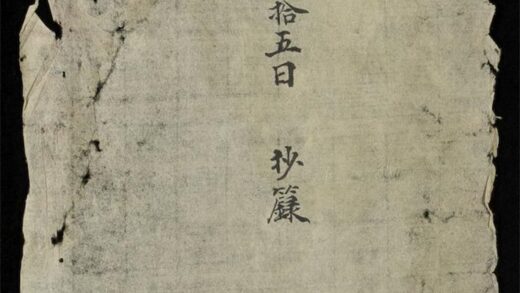 拾五日 抄籙